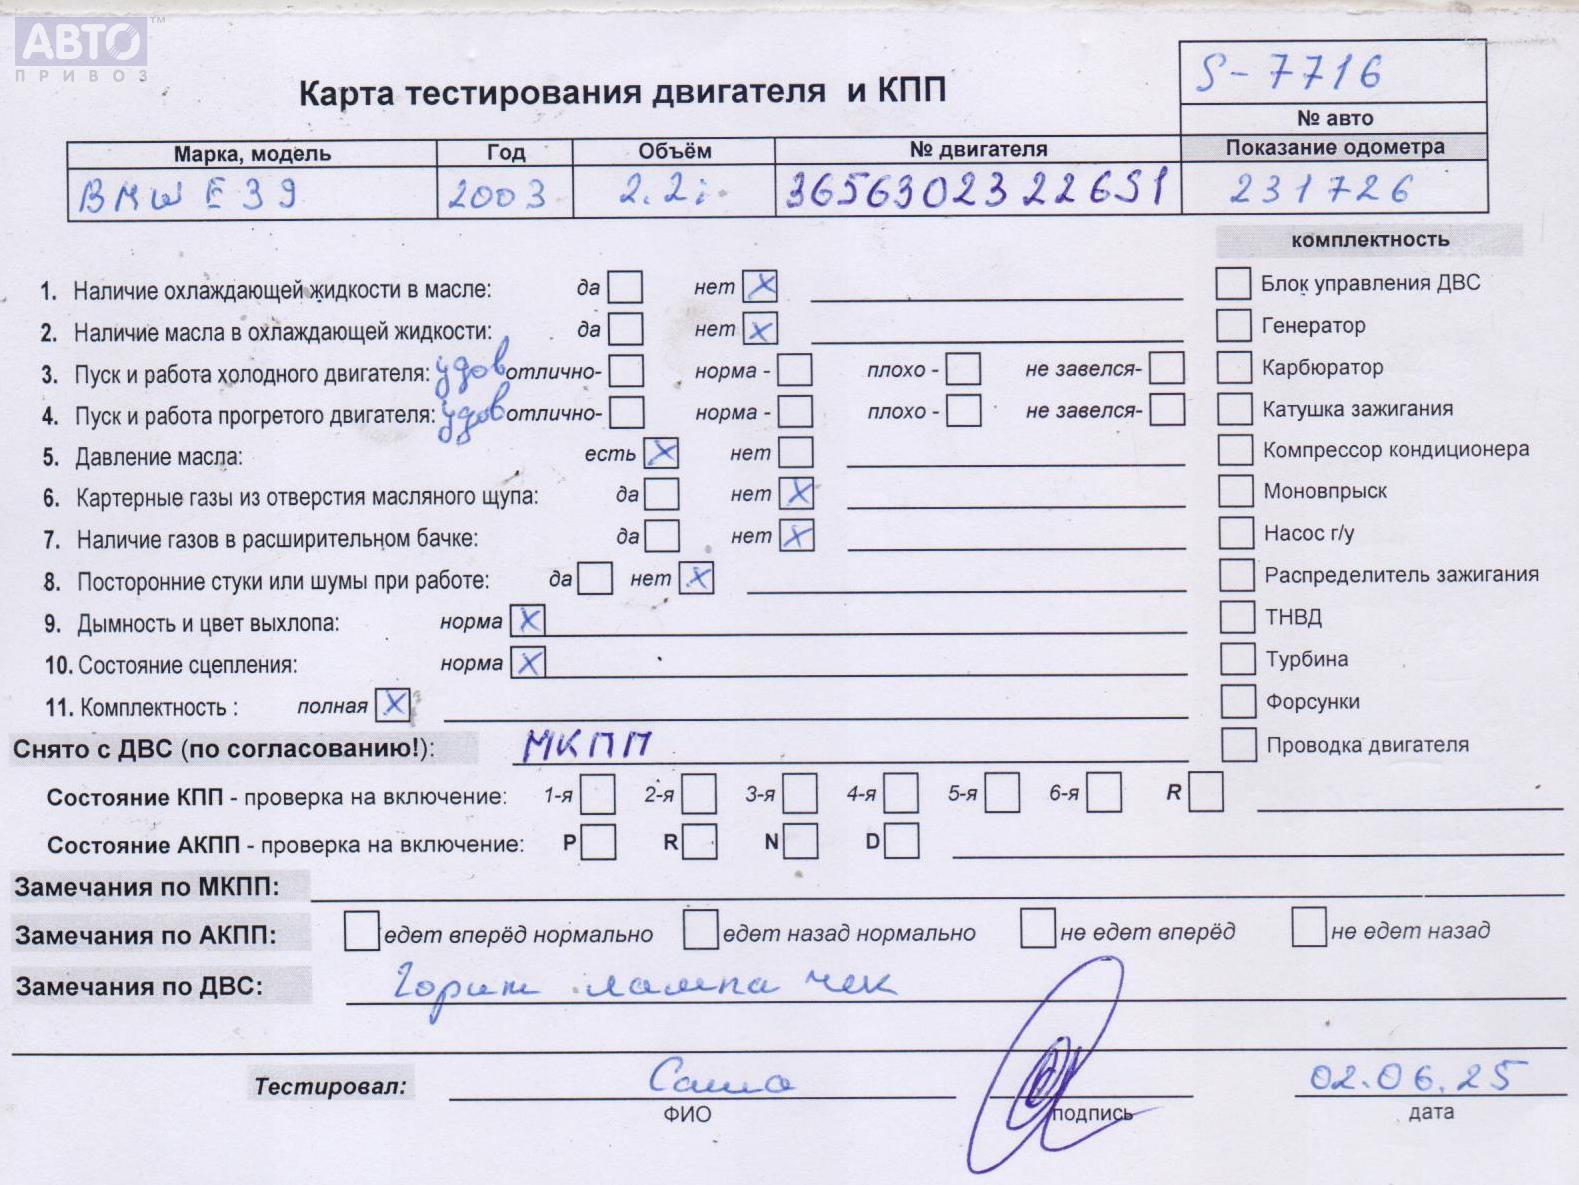 АВТО ™
ПРИВОЗ
S-7716
Карта тестирования двигателя и КПП
№ авто
Марка, модель Год Объём № двигателя Показание одометра
BMW E39 2003 2.2i 36563023226S1 231726
комплектность
1. Наличие охлаждающей жидкости в масле: да нет X Блок управления ДВС
2. Наличие масла в охлаждающей жидкости: да нет X Генератор
3. Пуск и работа холодного двигателя: удов отлично- норма - плохо - не завелся- Карбюратор
4. Пуск и работа прогретого двигателя: удов отлично- норма - плохо - не завелся- Катушка зажигания
5. Давление масла: есть X нет Компрессор кондиционера
6. Картерные газы из отверстия масляного щупа: да нет X Моновпрыск
7. Наличие газов в расширительном бачке: да нет X Насос г/у
8. Посторонние стуки или шумы при работе: да нет X Распределитель зажигания
9. Дымность и цвет выхлопа: норма X ТНВД
10. Состояние сцепления: норма X Турбина
11. Комплектность : полная X Форсунки
Снято с ДВС (по согласованию!): МКПП Проводка двигателя
Состояние КПП - проверка на включение: 1-я 2-я 3-я 4-я 5-я 6-я R
Состояние АКПП - проверка на включение: P R N D
Замечания по МКПП:
Замечания по АКПП: едет вперёд нормально едет назад нормально не едет вперёд не едет назад
Замечания по ДВС: Горит лампа чек
Тестировал: Саша 02.06.25
ФИО подпись дата